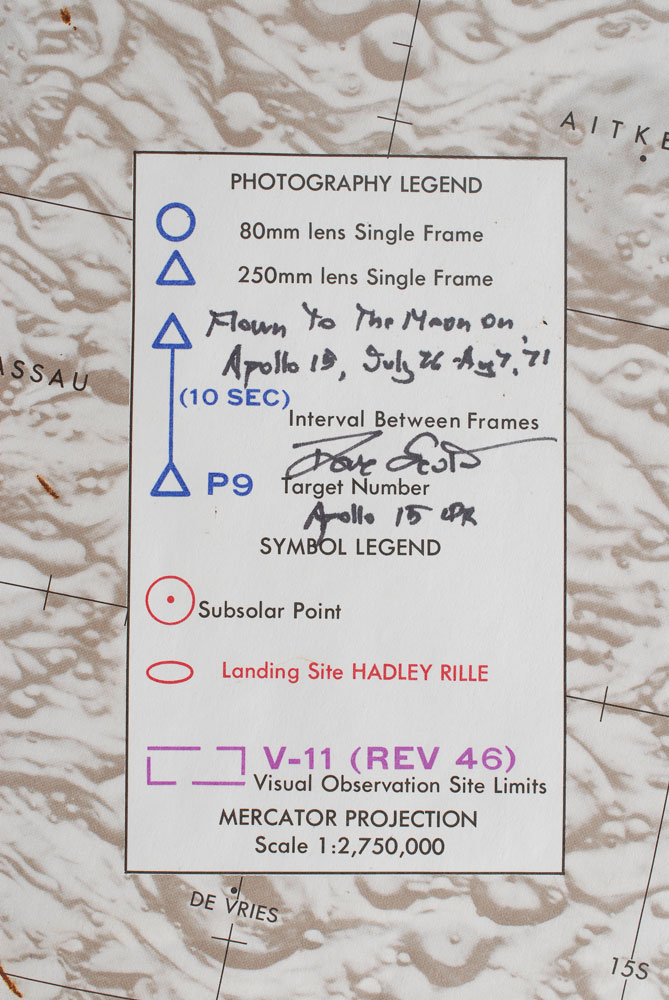 AITKE
PHOTOGRAPHY LEGEND
80mm lens Single Frame
250mm lens Single Frame
Flown To The Moon On
Apollo 15, July 26-Aug 7, '71
ASSAU
(10 SEC)
Interval Between Frames
Dave Scott
P9 Target Number
Apollo 15 CDR
SYMBOL LEGEND
Subsolar Point
Landing Site HADLEY RILLE
V-11 (REV 46)
Visual Observation Site Limits
MERCATOR PROJECTION
Scale 1:2,750,000
DE VRIES
15S